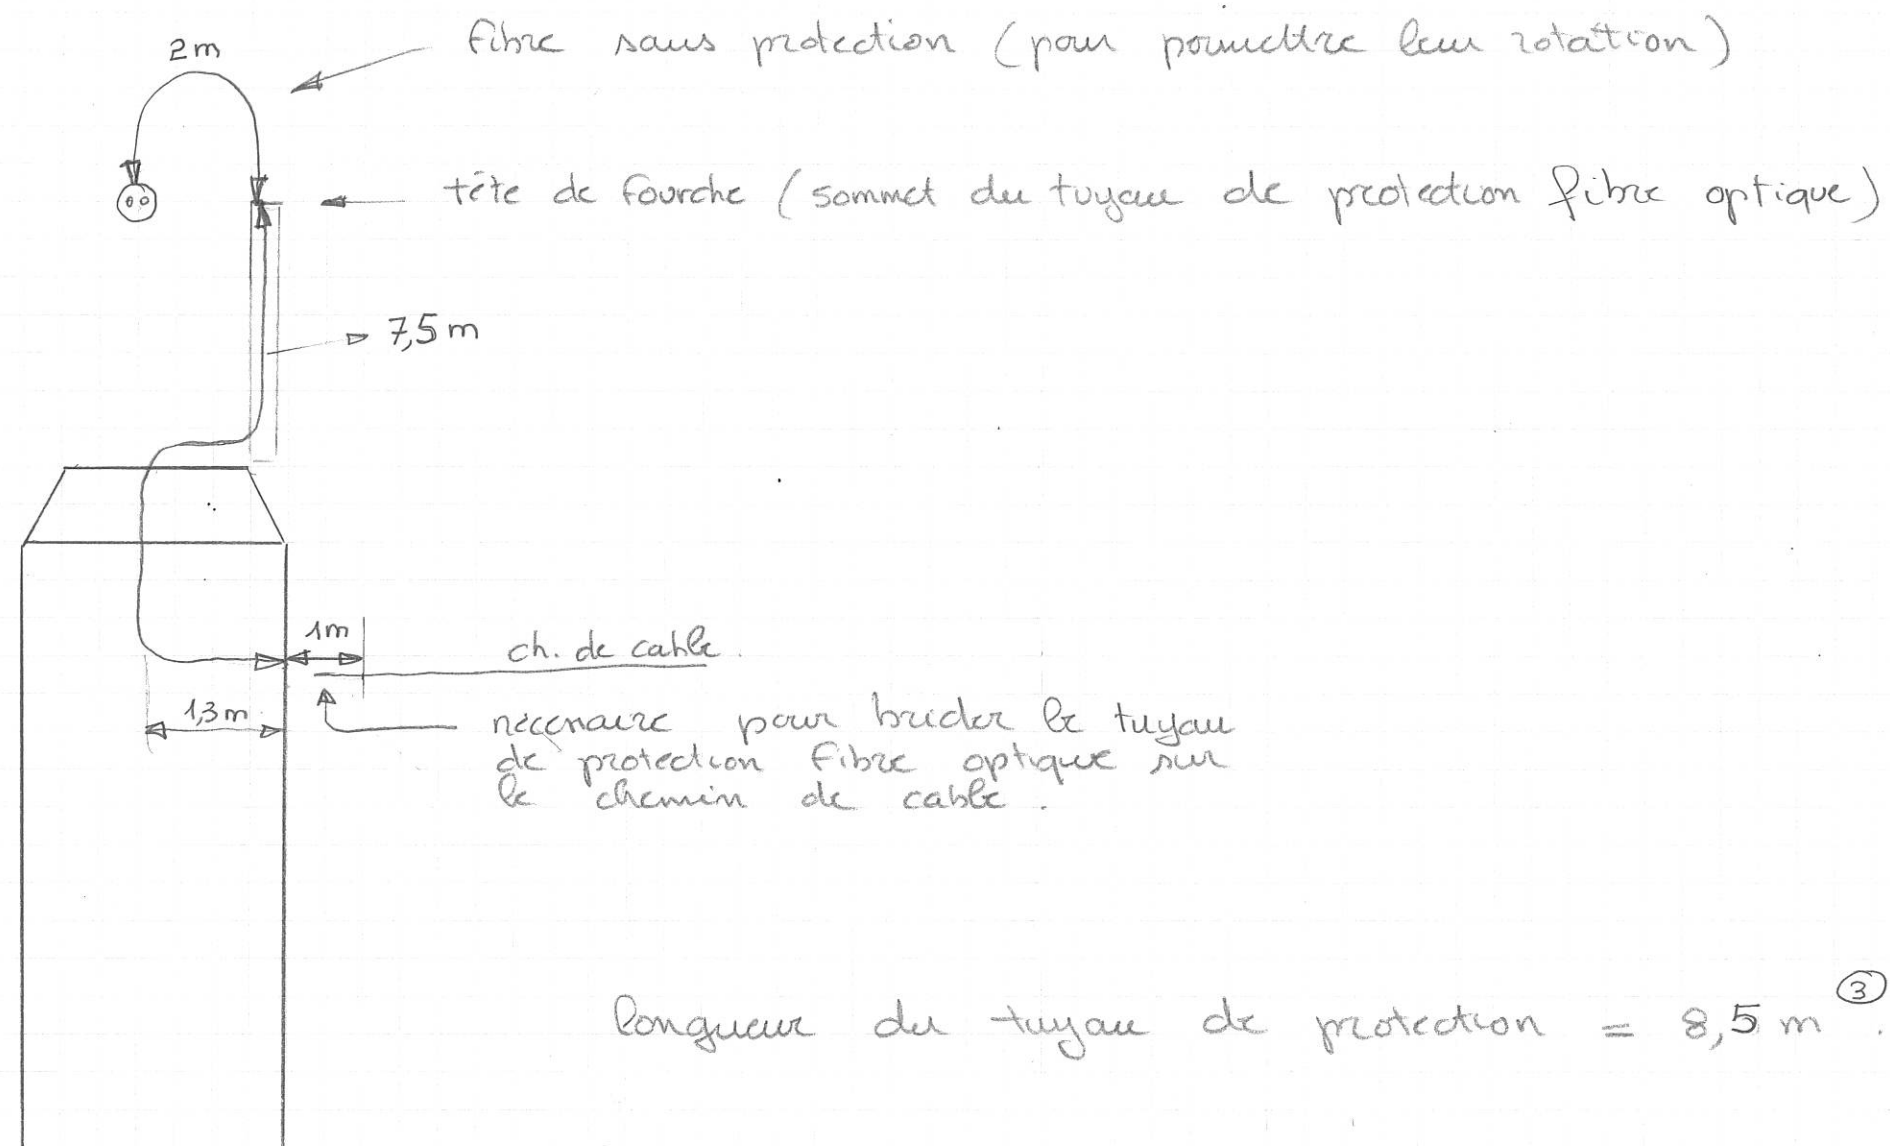 2m
fibre sans protection (pour permettre leur rotation)
tête de fourche (sommet du tuyau de protection fibre optique)
7,5 m
1m
ch. de cable.
1,3 m
nécessaire pour brider le tuyau
de protection fibre optique sur
le chemin de cable.
3
longueur du tuyau de protection = 8,5 m.